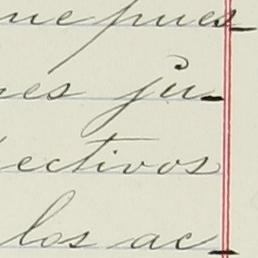 ue pues
nes ju-
ectivos
los ac-